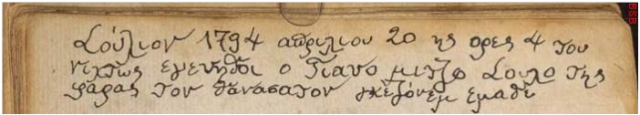 Σούλιον 1794 απριλιου 20 ης ορες 4 του
νιχτος εγενηθι ο Γιανο μιτζο Σουλο της
φαρας του θανασατου γκεζονεμ εμαθι
BSB